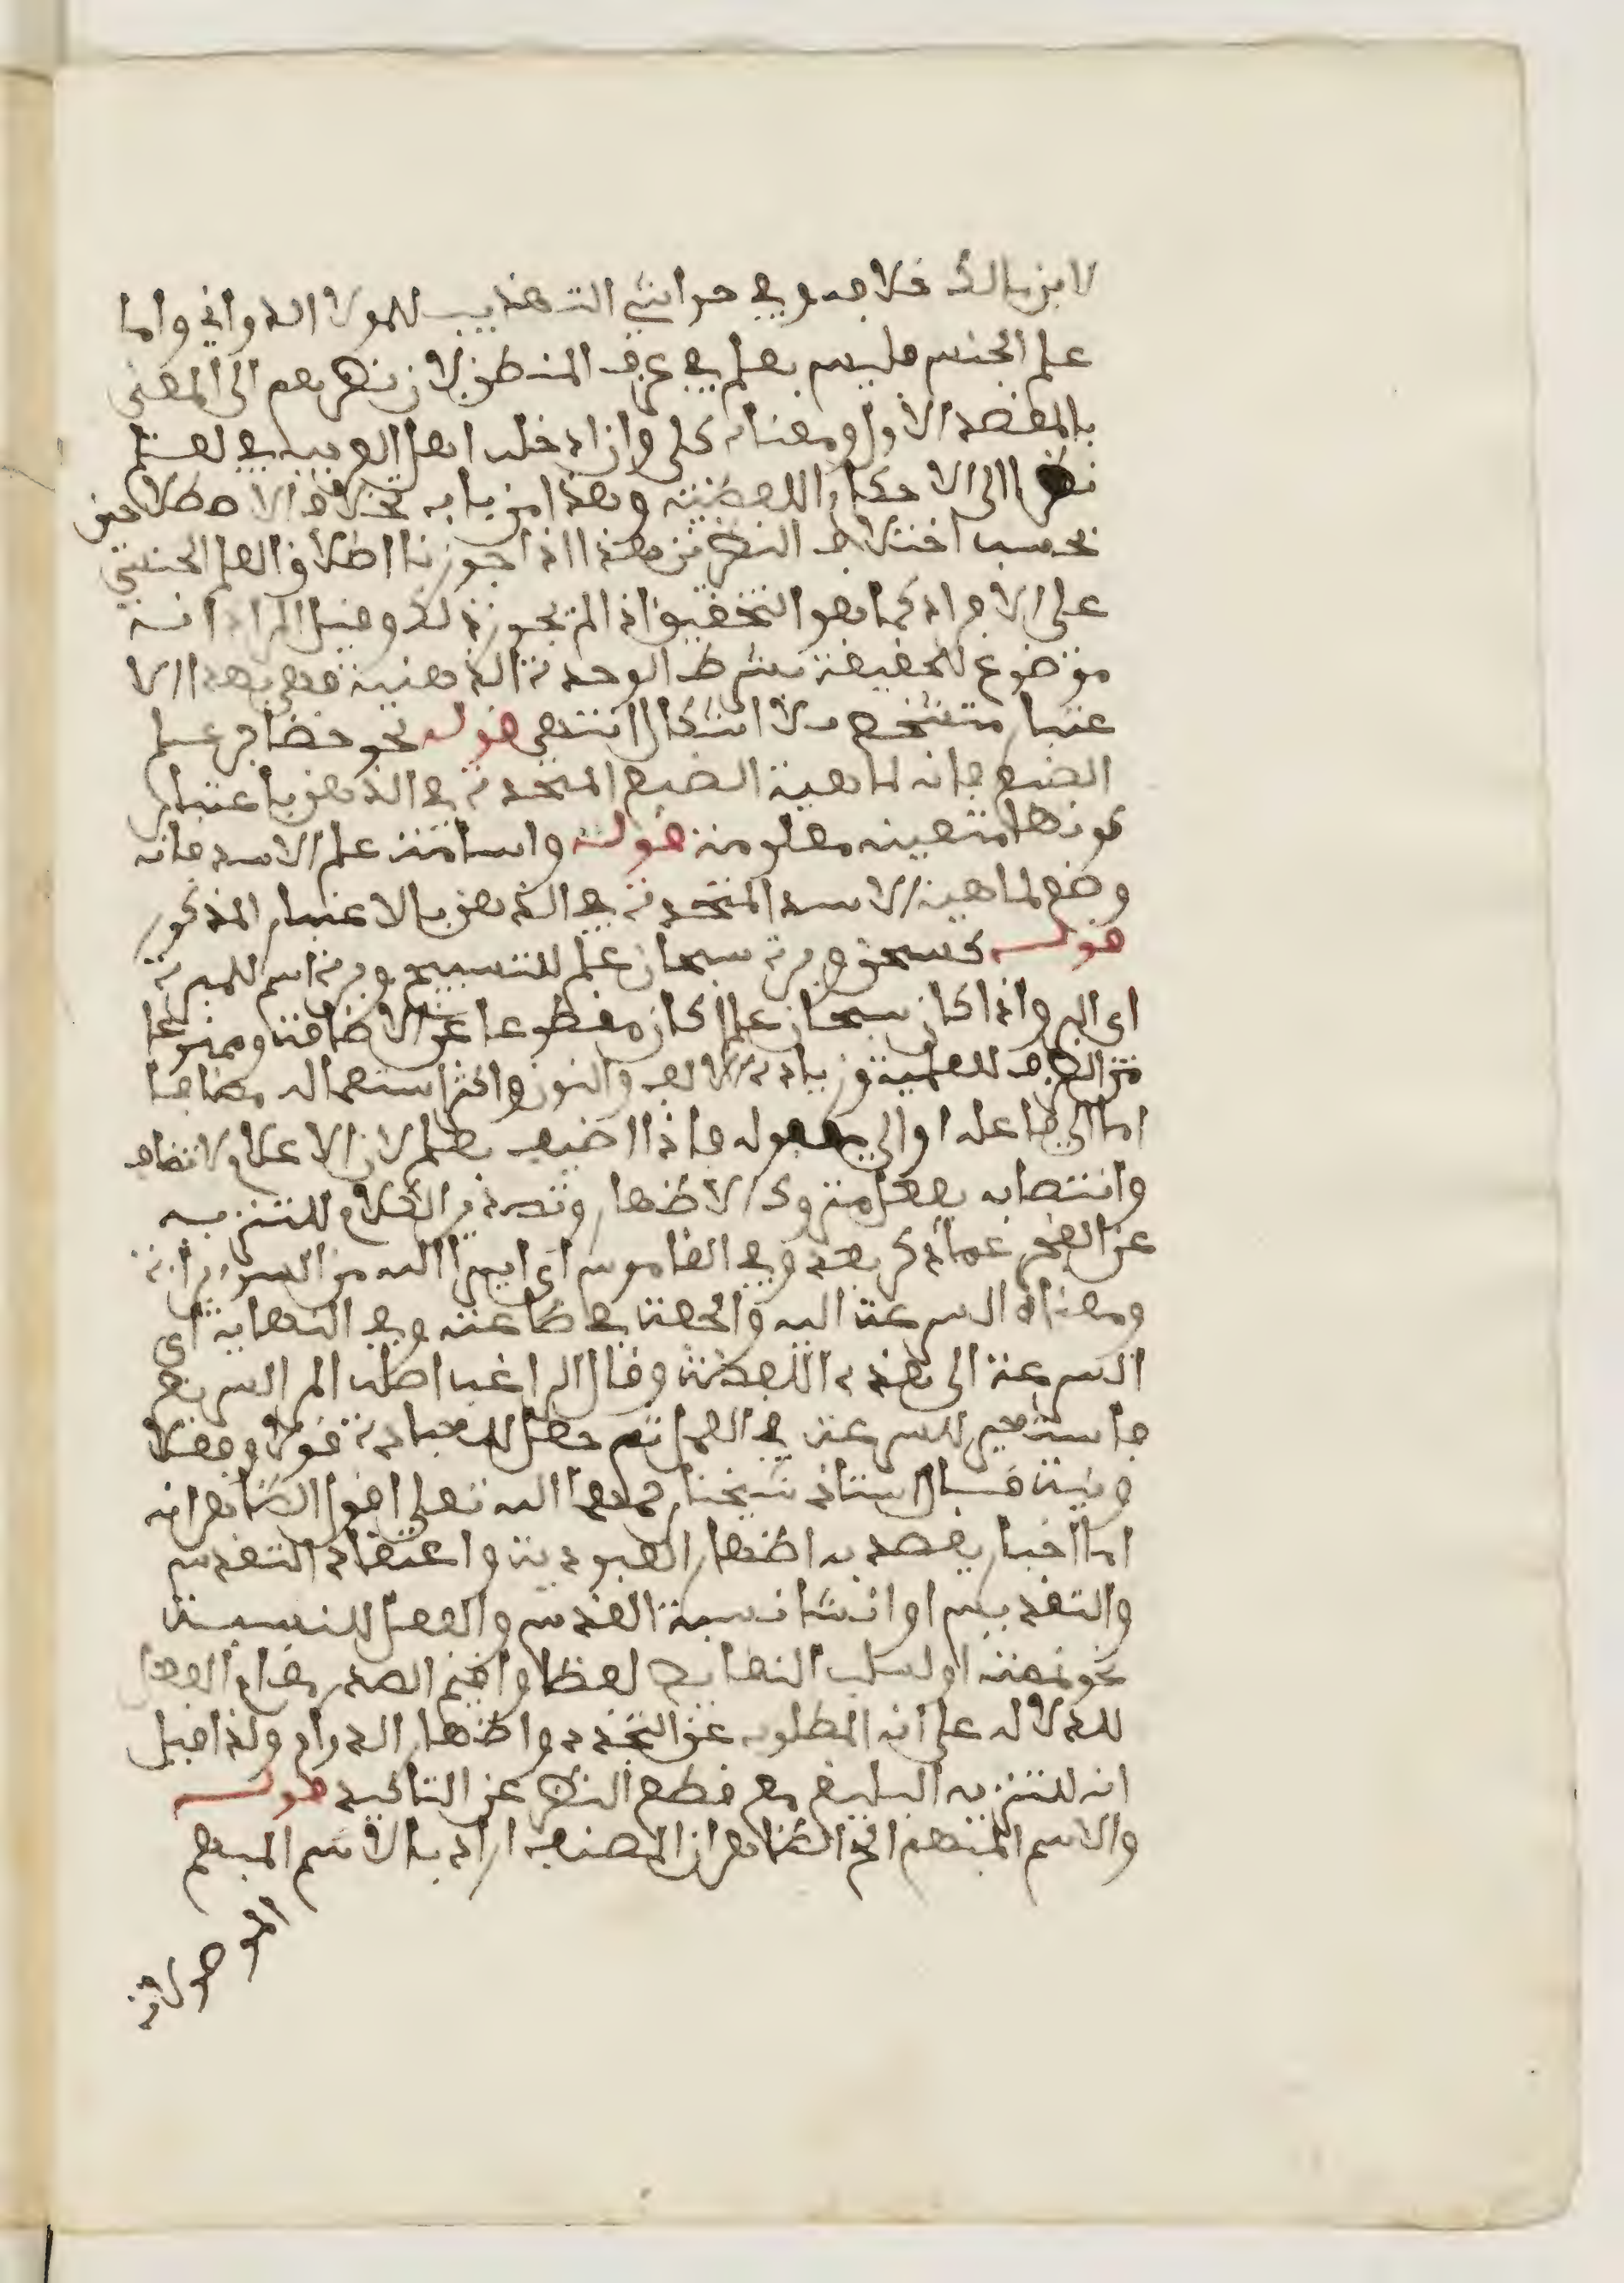 لابن مالك خلافه وفي حواشي التهذيب للمولا الدواني واما
علم الجنس فليس بعلم في عرف المنطق لان نظرهم الى المعنى
بالمقصد الاول ومعناه كلي وان ادخله اهل العربية في العلم
نظرا الى الاحكام اللفظية وهذا من باب اختلاف الاصطلاحين
بحسب اختلاف النظر من هذا اذا جوزنا اطلاق العلم الجنسي
على الافراد كما هو التحقيق اذا لم يجوز ذلك وقيل المراد انه
موضوع للحقيقة بشرط الوحدة الذهنية فهي بهذا الا
عتبار متشخصه فلا اشكال انتهى قوله نحو حضاجر علم
الضبع فانه لماهية الضبع المتحدة في الذهن باعتبار
كونها متعينه معلومة قوله واسامة علم الاسد فانه
وضع لماهية الاسد المتحدة في الذهن بالاعتبار المذكور
قوله كسبحن وبرة سبحان علم للتسبيح وبرة اسم للمبرة
اي البر واذا كان سبحان علما كان مقطوعا عن الاضافة وممنوعا
من الصرف للعلمية وزيادة الالف والنون واكثر استعماله مضافا
اما الى فاعله او الى مفعوله فاذا اضيف بعلم لان الاعلام لا تضاف
وانتصابه بفعل متروك اظهاره وتصدير الكلام للتنزيه
عن العجز عما ذكر بعده وفي القاموس اي ابرا الله من السوء براءة
ومعناه السرعة اليه والخفة في طاعته وفي النهاية اي
السرعة الى هذه اللفظة وقال الراغب اصله المر السريع
فاستعير للسرعة في العمل ثم جعل للعبادة قولا وفعلا
ونية قال استاذ شيخنا رحمهما الله تعلى اقول الظاهر انه
اما اخبار يقصد به اظهار العبودية واعتقاد التقدس
والتقديس او انشا نسبة القدس والفعل للنسبة
نحو نعته او لسلب النقايص لفظا واقيم المصدر مقام الفعل
للدلاله على انه المطلوب عن التجدد واظهار الدوام ولذا قيل
انه للتنزيه البليغ مع قطع النظر عن التاكيد قوله
والاسم المبهم الخ الظاهر ان المصنف اراد بالاسم المبهم
الموصولات